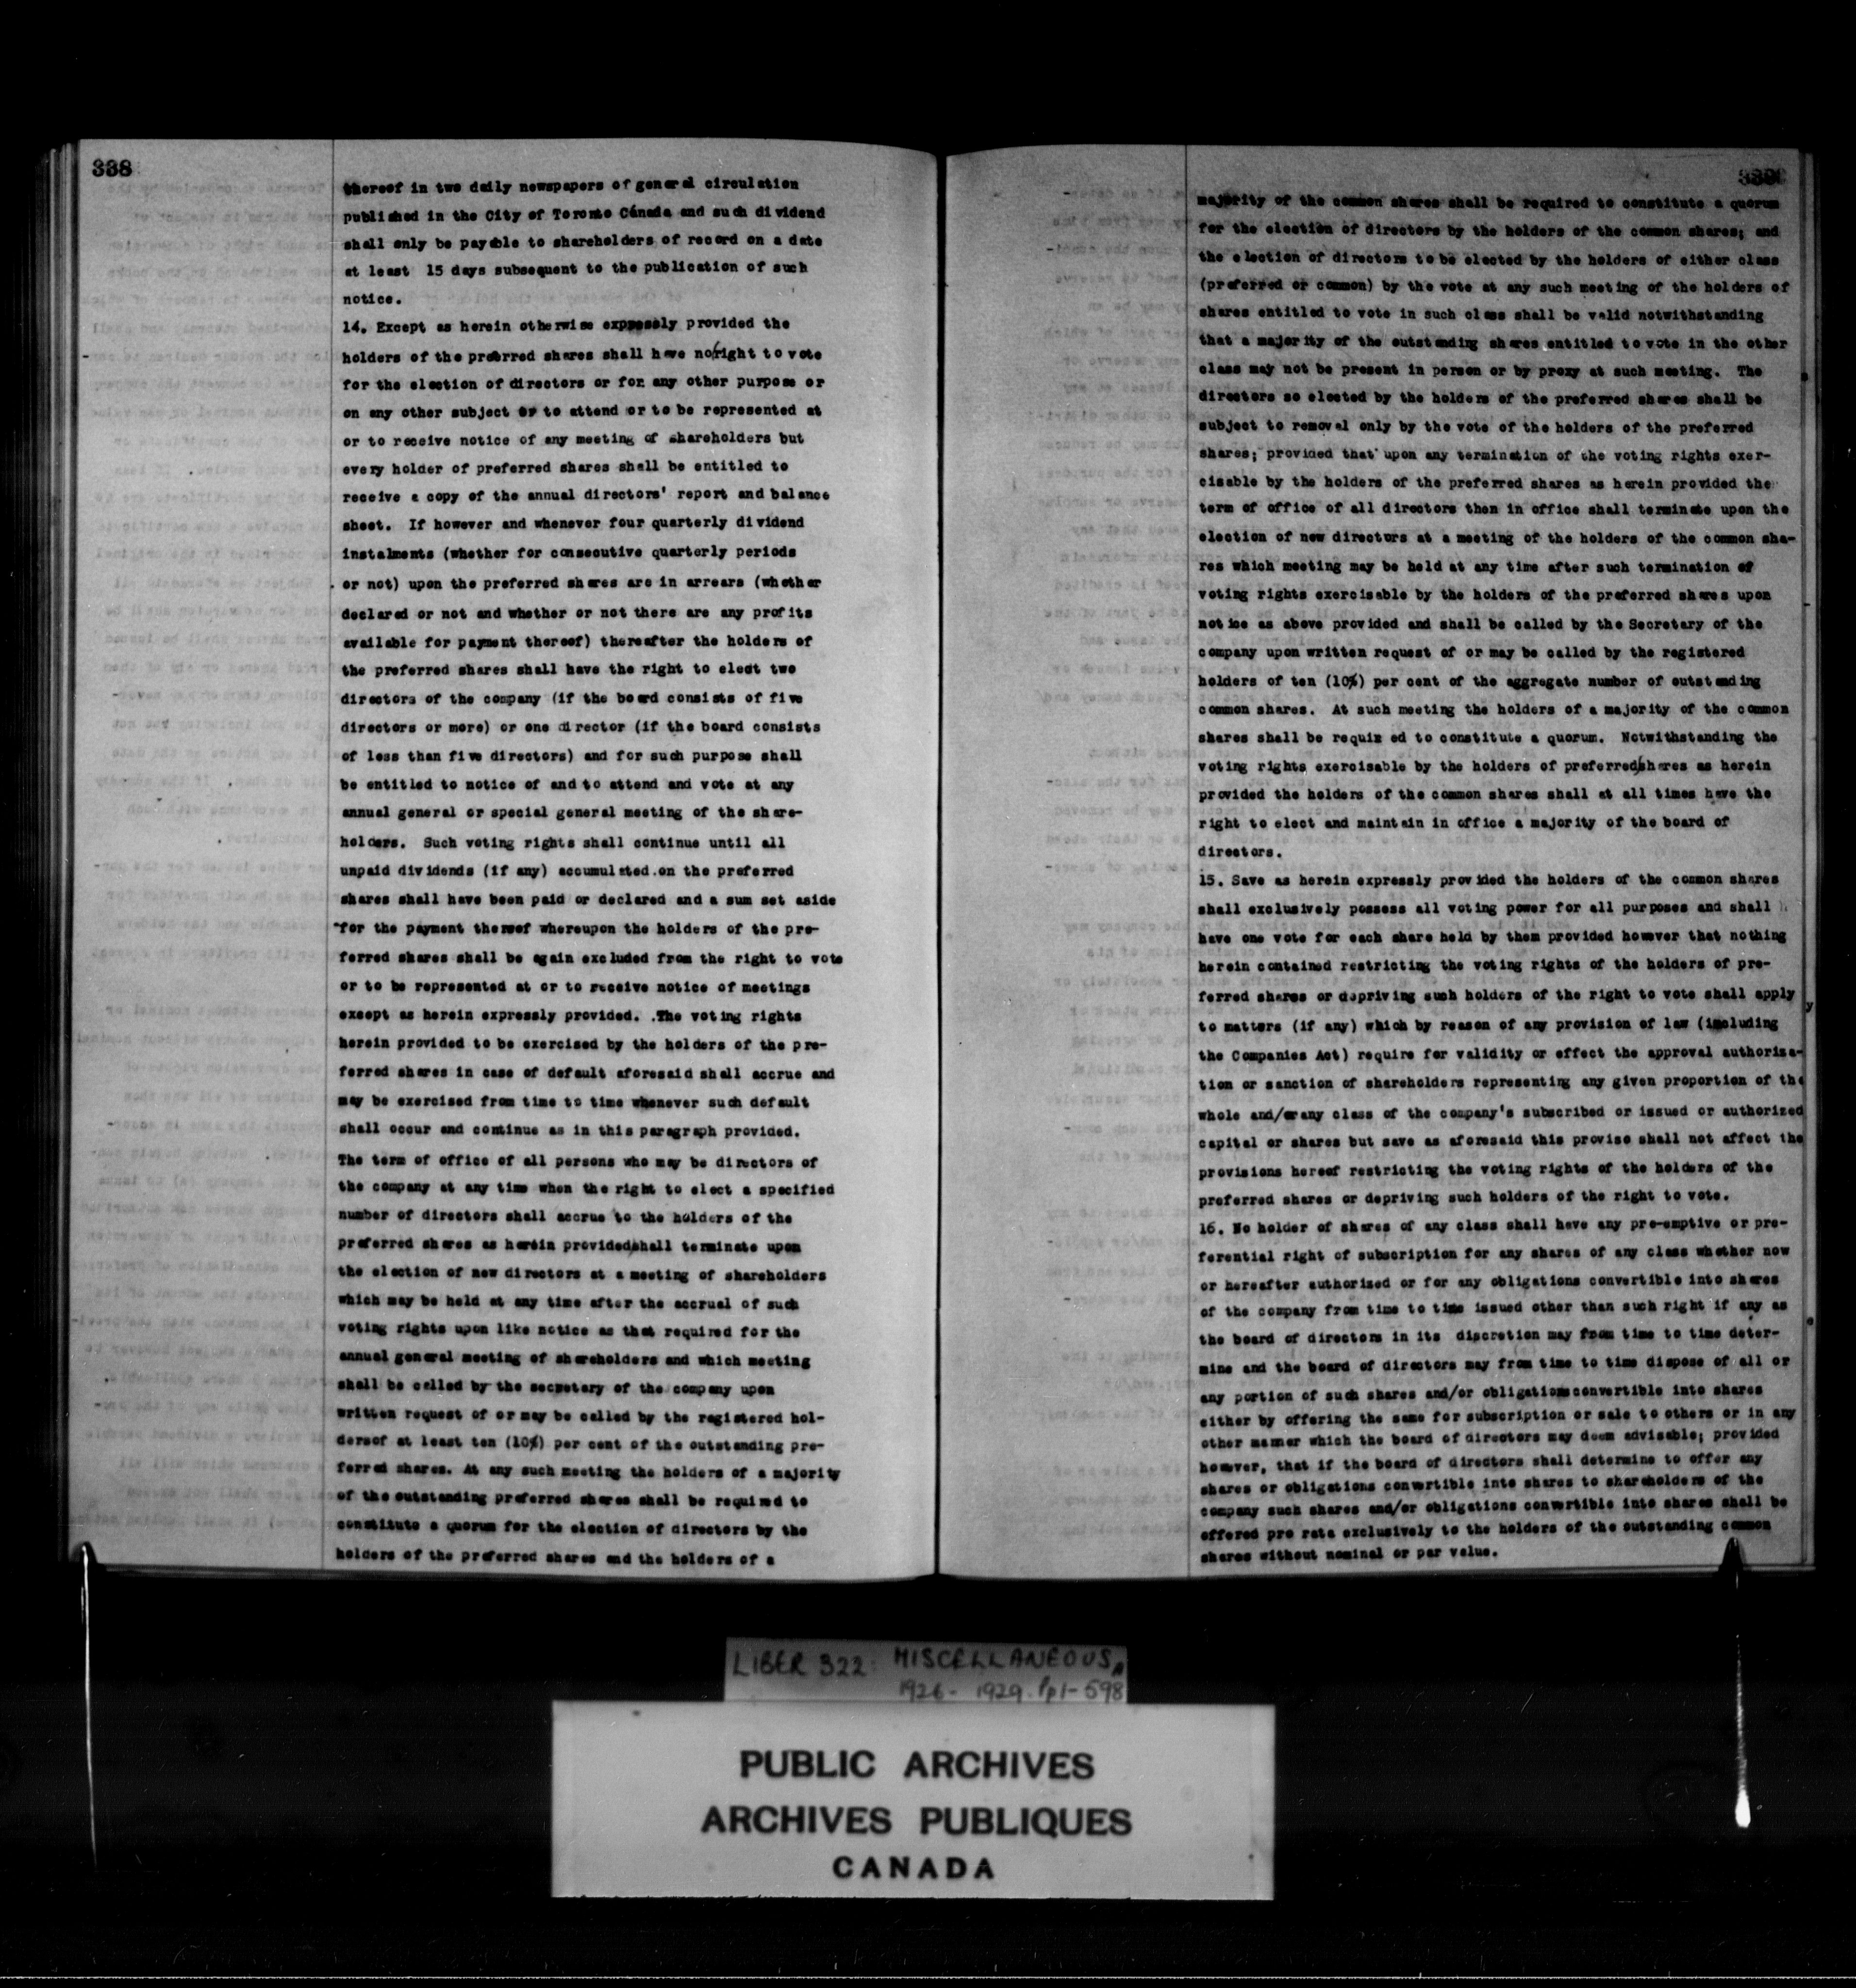 338
thereof in two daily newspapers of general circulation
published in the City of Toronto Cánada and such dividend
shall only be payable to shareholders of record on a date
at least 15 days subsequent to the publication of such
notice.
14. Except as herein otherwise expressly provided the
holders of the preferred shares shall have no/right to vote
for the election of directors or for any other purpose or
on any other subject or to attend or to be represented at
or to receive notice of any meeting of shareholders but
every holder of preferred shares shall be entitled to
receive a copy of the annual directors' report and balance
sheet. If however and whenever four quarterly dividend
instalments (whether for consecutive quarterly periods
or not) upon the preferred shares are in arrears (whether
declared or not and whether or not there are any profits
available for payment thereof) thereafter the holders of
the preferred shares shall have the right to elect two
directors of the company (if the board consists of five
directors or more) or one director (if the board consists
of less than five directors) and for such purpose shall
be entitled to notice of and to attend and vote at any
annual general or special general meeting of the share-
holders. Such voting rights shall continue until all
unpaid dividends (if any) accumulated on the preferred
shares shall have been paid or declared and a sum set aside
for the payment thereof whereupon the holders of the pre-
ferred shares shall be again excluded from the right to vote
or to be represented at or to receive notice of meetings
except as herein expressly provided. .The voting rights
herein provided to be exercised by the holders of the pre-
ferred shares in case of default aforesaid shall accrue and
may be exercised from time to time whenever such default
shall occur and continue as in this paragraph provided.
The term of office of all persons who may be directors of
the company at any time when the right to elect a specified
number of directors shall accrue to the holders of the
preferred shares as herein provided/shall terminate upon
the election of new directors at a meeting of shareholders
which may be held at any time after the accrual of such
voting rights upon like notice as that required for the
annual general meeting of shareholders and which meeting
shall be called by the secretary of the company upon
written request of or may be called by the registered hol-
dersof at least ten (10%) per cent of the outstanding pre-
ferred shares. At any such meeting the holders of a majority
of the outstanding preferred shares shall be required to
constitute a quorum for the election of directors by the
holders of the preferred shares and the holders of a
339
majority of the common shares shall be required to constitute a quorum
for the election of directors by the holders of the common shares; and
the election of directors to be elected by the holders of either class
(preferred or common) by the vote at any such meeting of the holders of
shares entitled to vote in such class shall be valid notwithstanding
that a majority of the outstanding shares entitled to vote in the other
class may not be present in person or by proxy at such meeting. The
directors so elected by the holders of the preferred shares shall be
subject to removal only by the vote of the holders of the preferred
shares; provided that upon any termination of the voting rights exer-
cisable by the holders of the preferred shares as herein provided the
term of office of all directors then in office shall terminate upon the
election of new directors at a meeting of the holders of the common sha-
res which meeting may be held at any time after such termination of
voting rights exercisable by the holders of the preferred shares upon
notice as above provided and shall be called by the Secretary of the
company upon written request of or may be called by the registered
holders of ten (10%) per cent of the aggregate number of outstanding
common shares. At such meeting the holders of a majority of the common
shares shall be required to constitute a quorum. Notwithstanding the
voting rights exercisable by the holders of preferred/shares as herein
provided the holders of the common shares shall at all times have the
right to elect and maintain in office a majority of the board of
directors.
15. Save as herein expressly provided the holders of the common shares
shall exclusively possess all voting power for all purposes and shall
have one vote for each share held by them provided however that nothing
herein contained restricting the voting rights of the holders of pre-
ferred shares or depriving such holders of the right to vote shall apply
to matters (if any) which by reason of any provision of law (including
the Companies Act) require for validity or effect the approval authoriza-
tion or sanction of shareholders representing any given proportion of the
whole and/orany class of the company's subscribed or issued or authorized
capital or shares but save as aforesaid this proviso shall not affect the
provisions hereof restricting the voting rights of the holders of the
preferred shares or depriving such holders of the right to vote.
16. No holder of shares of any class shall have any pre-emptive or pre-
ferential right of subscription for any shares of any class whether now
or hereafter authorized or for any obligations convertible into shares
of the company from time to time issued other than such right if any as
the board of directors in its discretion may from time to time deter-
mine and the board of directors may from time to time dispose of all or
any portion of such shares and/or obligations convertible into shares
either by offering the same for subscription or sale to others or in any
other manner which the board of directors may deem advisable; provided
however, that if the board of directors shall determine to offer any
shares or obligations convertible into shares to shareholders of the
company such shares and/or obligations convertible into shares shall be
offered pro rata exclusively to the holders of the outstanding common
shares without nominal or par value.
LIBER 322: MISCELLANEOUS,
1926- 1929. Pp1-598
PUBLIC ARCHIVES
ARCHIVES PUBLIQUES
CANADA